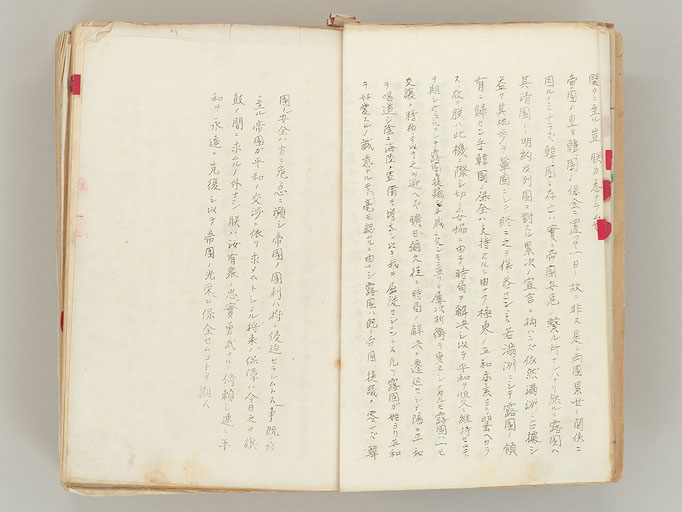 釁クニ至ル豈朕カ志ナラムヤ
帝國ノ重ヲ韓國ノ保全ニ置クヤ一日ノ故ニ非ス是レ両國累世ノ関係ニ
因ルノミナラス韓國ノ存亡ハ實ニ帝國安危ノ繋ル所ナレハナリ然ルニ露國ハ
其清國トノ明約及列國ニ對スル累次ノ宣言ニ拘ハラス依然満洲ニ占據シ
益々其地歩ヲ鞏固ニシテ終ニ之ヲ併呑セントス若満洲ニシテ露國ノ領
有ニ歸センカ韓國ノ保全ハ支持スルニ由ナク極東ノ平和亦素ヨリ望ムヘカラ
ス故ニ朕ハ此機ニ際シ切ニ妥協ニ由テ時局ヲ解決シ以テ平和ヲ恒久ニ維持セムコト
ヲ期シ有司ヲシテ露國ニ提議シ半歳ノ久シキニ亙リテ屡次折衝ヲ重ネシメタルモ露國ハ一モ
交讓ノ精神ヲ以テ之ヲ迎ヘス曠日彌久徒ニ時局ノ解決ヲ遷延セシメ陽ニ平和
ヲ唱道シ陰ニ海陸ノ軍備ヲ増大シ以テ我ヲ屈從セシメントス凡ソ露國カ始ヨリ平和
ヲ好愛スルノ誠意ナルモノ毫モ認ムルニ由ナシ露國ハ既ニ帝國ノ提議ヲ容レス韓
國ノ安全ハ方ニ危急ニ瀕シ帝國ノ國利ハ将ニ侵迫セラレムトス事既ニ茲
ニ至ル帝國カ平和ノ交渉ニ依リ求メムトシタル将来ノ保障ハ今日之ヲ旗
鼓ノ間ニ求ムルノ外ナシ朕ハ汝有衆ノ忠實勇武ナルニ倚頼シ速ニ平
和ヲ永遠ニ克復シ以テ帝國ノ光栄ヲ保全セムコトヲ期ス